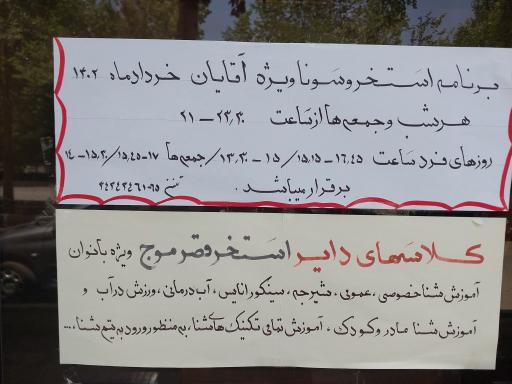 برنامه استخر و سونا ویژه آقایان خردادماه ۱۴۰۲
هرشب و جمعه‌ها از ساعت ۲۳,۳۰ – ۲۱
روزهای فرد ساعت ۱۶,۴۵-۱۵,۱۵ / ۱۵-۱۳,۳۰ / جمعه‌ها ۱۷-۱۵,۴۵ / ۱۵,۳۰-۱۴
برقرار میباشد. تلفن ۲۴۲۴۲۴۶۱-۶۵
کلاسهای دایر استخر قصر موج ویژه بانوان
آموزش شنا خصوصی، عمومی، شیرجه، سینکورانایس، آب درمانی، ورزش در آب و
آموزش شنا مادر و کودک، آموزش تمامی تکنیک‌های شنا، به منظور ورود به تیم شنا....